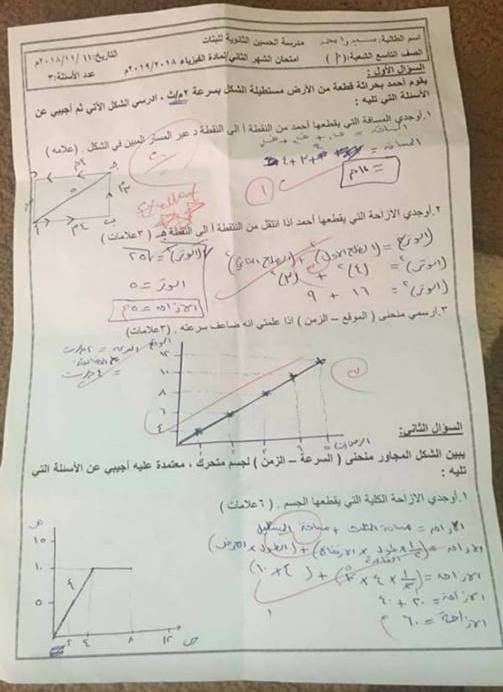 اسم الطالبة:
مدرسة الحسين الثانوية للبنات
التاريخ: ١١/ ١١/ ٢٠١٨م
الصف التاسع الشعبة:( )
امتحان الشهر الثاني/لمادة الفيزياء ٢٠١٩/٢٠١٨م
عدد الأسئلة:٣
السؤال الأول:
يقوم أحمد بحراثة قطعة من الأرض مستطيلة الشكل بسرعة ٢م/ث ، ادرسي الشكل الآتي ثم أجيبي عن
الأسئلة التي تليه :
١.أوجدي المسافة التي يقطعها أحمد من النقطة أ الى النقطة د عبر المسار المبين في الشكل . (علامه )
المسافة =
٤+٣+٤
= ١١م
١
Excellent
٢.أوجدي الازاحة التي يقطعها أحمد اذا انتقل من النقطة أ الى النقطة جـ . (٣علامات )
(الوتر)٢ = (الضلع الأول)٢ + (الضلع الثاني)٢
(الوتر)٢ = (٤)٢ + (٣)٢
(الوتر)٢ = ١٦ + ٩
(الوتر)٢ = ٢٥
الوتر = ٥
الازاحة = ٥م
٣.ارسمي منحنى ( الموقع – الزمن ) اذا علمتي أنه ضاعف سرعته . (٣علامات)
الموقع
١٢
١٠
٨
٦
٤
السؤال الثاني:
يبين الشكل المجاور منحنى ( السرعة – الزمن ) لجسم متحرك ، معتمدة عليه أجيبي عن الأسئلة التي
تليه :
١.أوجدي الازاحة الكلية التي يقطعها الجسم . ( ٦علامات )
الازاحة = مساحة المثلث + مساحة المستطيل
الازاحة = (½ × طول القاعدة × الارتفاع) + (الطول × العرض)
الازاحة = (½ × ٤ × ١٠) + (٤ × ١٠)
الازاحة = ٢٠ + ٤٠
الازاحة = ٦٠ م
١٥
١٠
٥
٢ ٤ ٨ ١٢